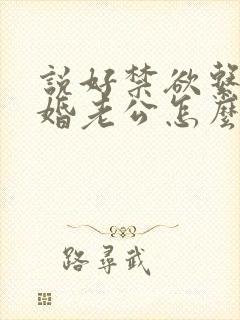 說好禁欲繫
婚老公怎麼
路尋武